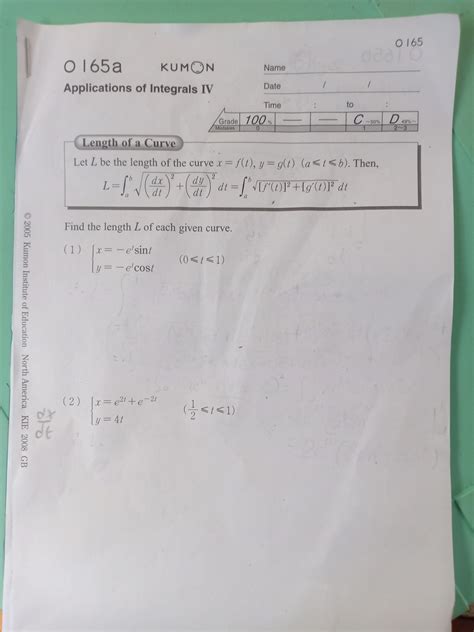 O 165
O 165a KUMON Name
Applications of Integrals IV Date / /
Time : to :
Grade 100% — — C ~50% D 49%~
Mistakes 0 1 2~3
Length of a Curve
Let L be the length of the curve x = f(t), y = g(t) (a ⩽ t ⩽ b). Then,
L = ∫ₐᵇ √((dx/dt)² + (dy/dt)²) dt = ∫ₐᵇ √([f′(t)]² + [g′(t)]²) dt
Find the length L of each given curve.
(1) { x = −eᵗ sin t
y = −eᵗ cos t (0 ⩽ t ⩽ 1)
(2) { x = e²ᵗ + e⁻²ᵗ
y = 4t (1/2 ⩽ t ⩽ 1)
© 2005 Kumon Institute of Education North America KIE 2008 GB